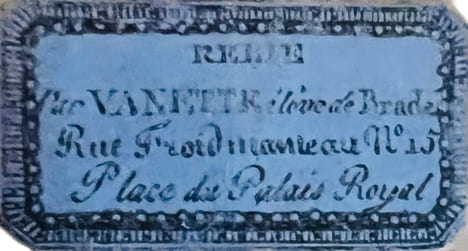 RELIE
Par VANETTE élève de Brade
Rue Froidmanteau N° 15
Place du Palais Royal